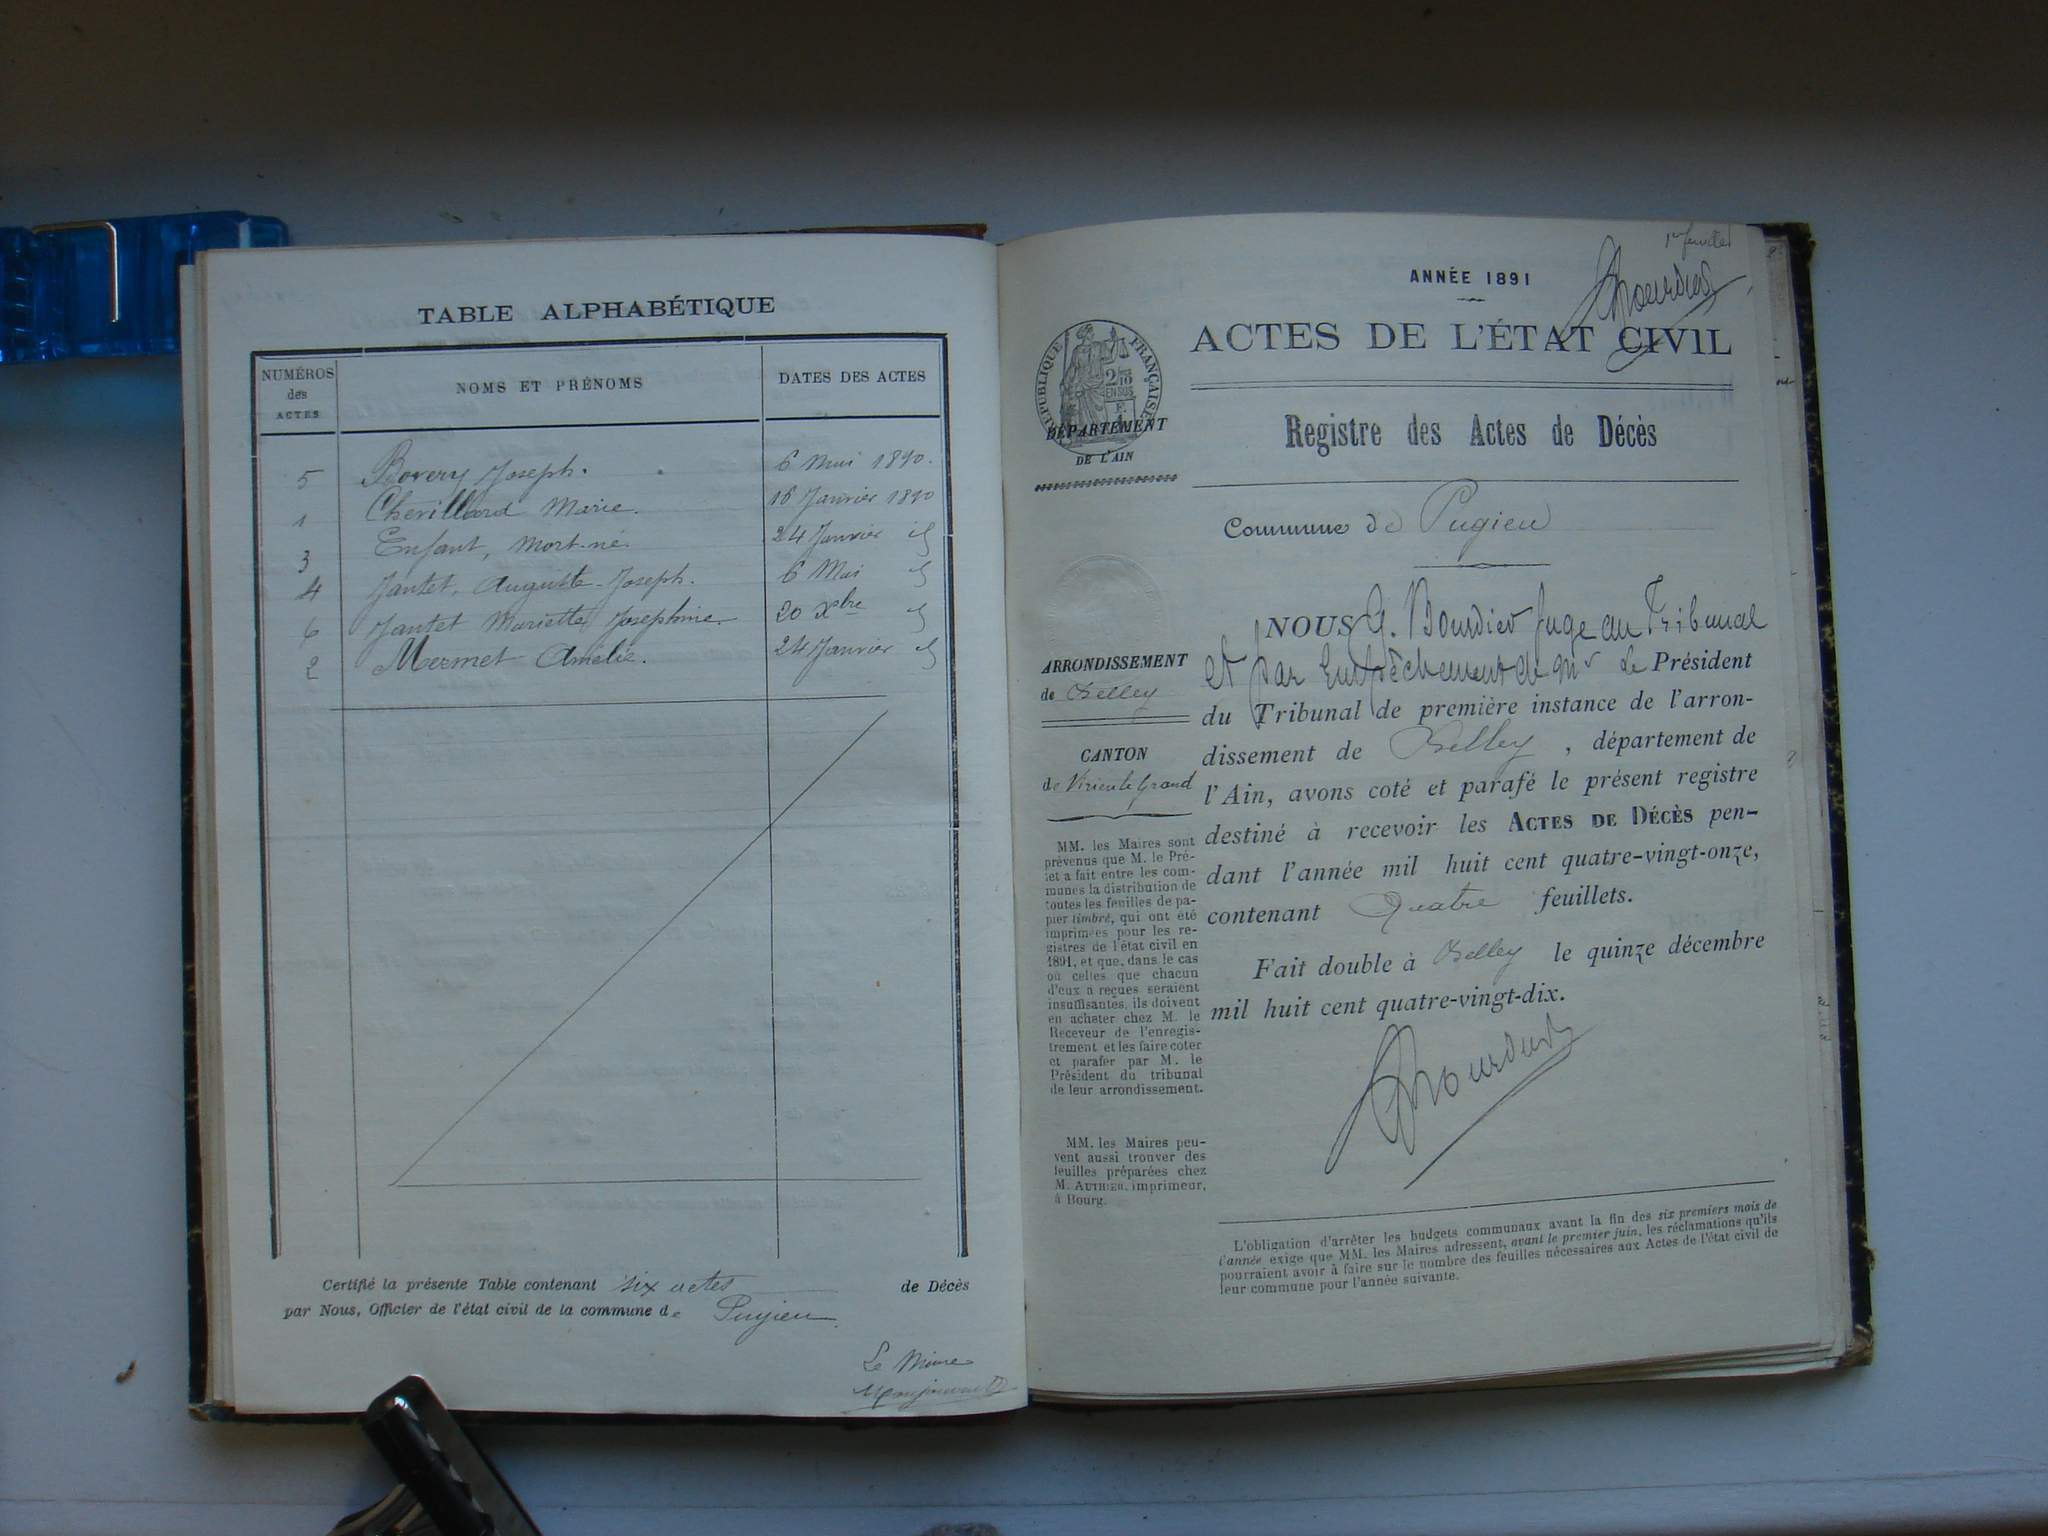 TABLE ALPHABÉTIQUE
NUMÉROS des ACTES
NOMS ET PRÉNOMS
DATES DES ACTES
5 Bovery Joseph. 6 Mai 1890.
1 Chevillard Marie. 16 Janvier 1890
3 Enfant, Mort-né 24 Janvier id
4 Jantet, Auguste-Joseph. 6 Mai id
6 Jantet Mariette Joséphine 20 Xbre id
2 Mermet Amélie. 24 Janvier id
Certifié la présente Table contenant six actes de Décès
par Nous, Officier de l'état civil de la commune de Pugieu
Le Maire
1er feuillet
ANNÉE 1891
ACTES DE L'ÉTAT CIVIL
RÉPUBLIQUE FRANÇAISE
2/10
EN SUS
DÉPARTEMENT
DE L'AIN
Registre des Actes de Décès
Commune de Pugieu
ARRONDISSEMENT
de Belley
CANTON
de Virieu le Grand
MM. les Maires sont
prévenus que M. le Pré-
fet a fait entre les com-
munes la distribution de
toutes les feuilles de pa-
pier timbré, qui ont été
imprimées pour les re-
gistres de l'état civil en
1891, et que, dans le cas
où celles que chacun
d'eux a reçues seraient
insuffisantes, ils doivent
en acheter chez M. le
Receveur de l'enregis-
trement et les faire coter
et parafer par M. le
Président du tribunal
de leur arrondissement.
MM. les Maires peu-
vent aussi trouver des
feuilles préparées chez
M. AUTHIER, imprimeur,
à Bourg.
NOUS G. Bourdin Juge au Tribunal
et par Empêchement de Mr Le Président
du Tribunal de première instance de l'arron-
dissement de Belley, département de
l'Ain, avons coté et parafé le présent registre
destiné à recevoir les ACTES DE DÉCÈS pen-
dant l'année mil huit cent quatre-vingt-onze,
contenant Quatre feuillets.
Fait double à Belley le quinze décembre
mil huit cent quatre-vingt-dix.
L'obligation d'arrêter les budgets communaux avant la fin des six premiers mois de
l'année exige que MM. les Maires adressent, avant le premier juin, les réclamations qu'ils
pourraient avoir à faire sur le nombre des feuilles nécessaires aux Actes de l'état civil de
leur commune pour l'année suivante.